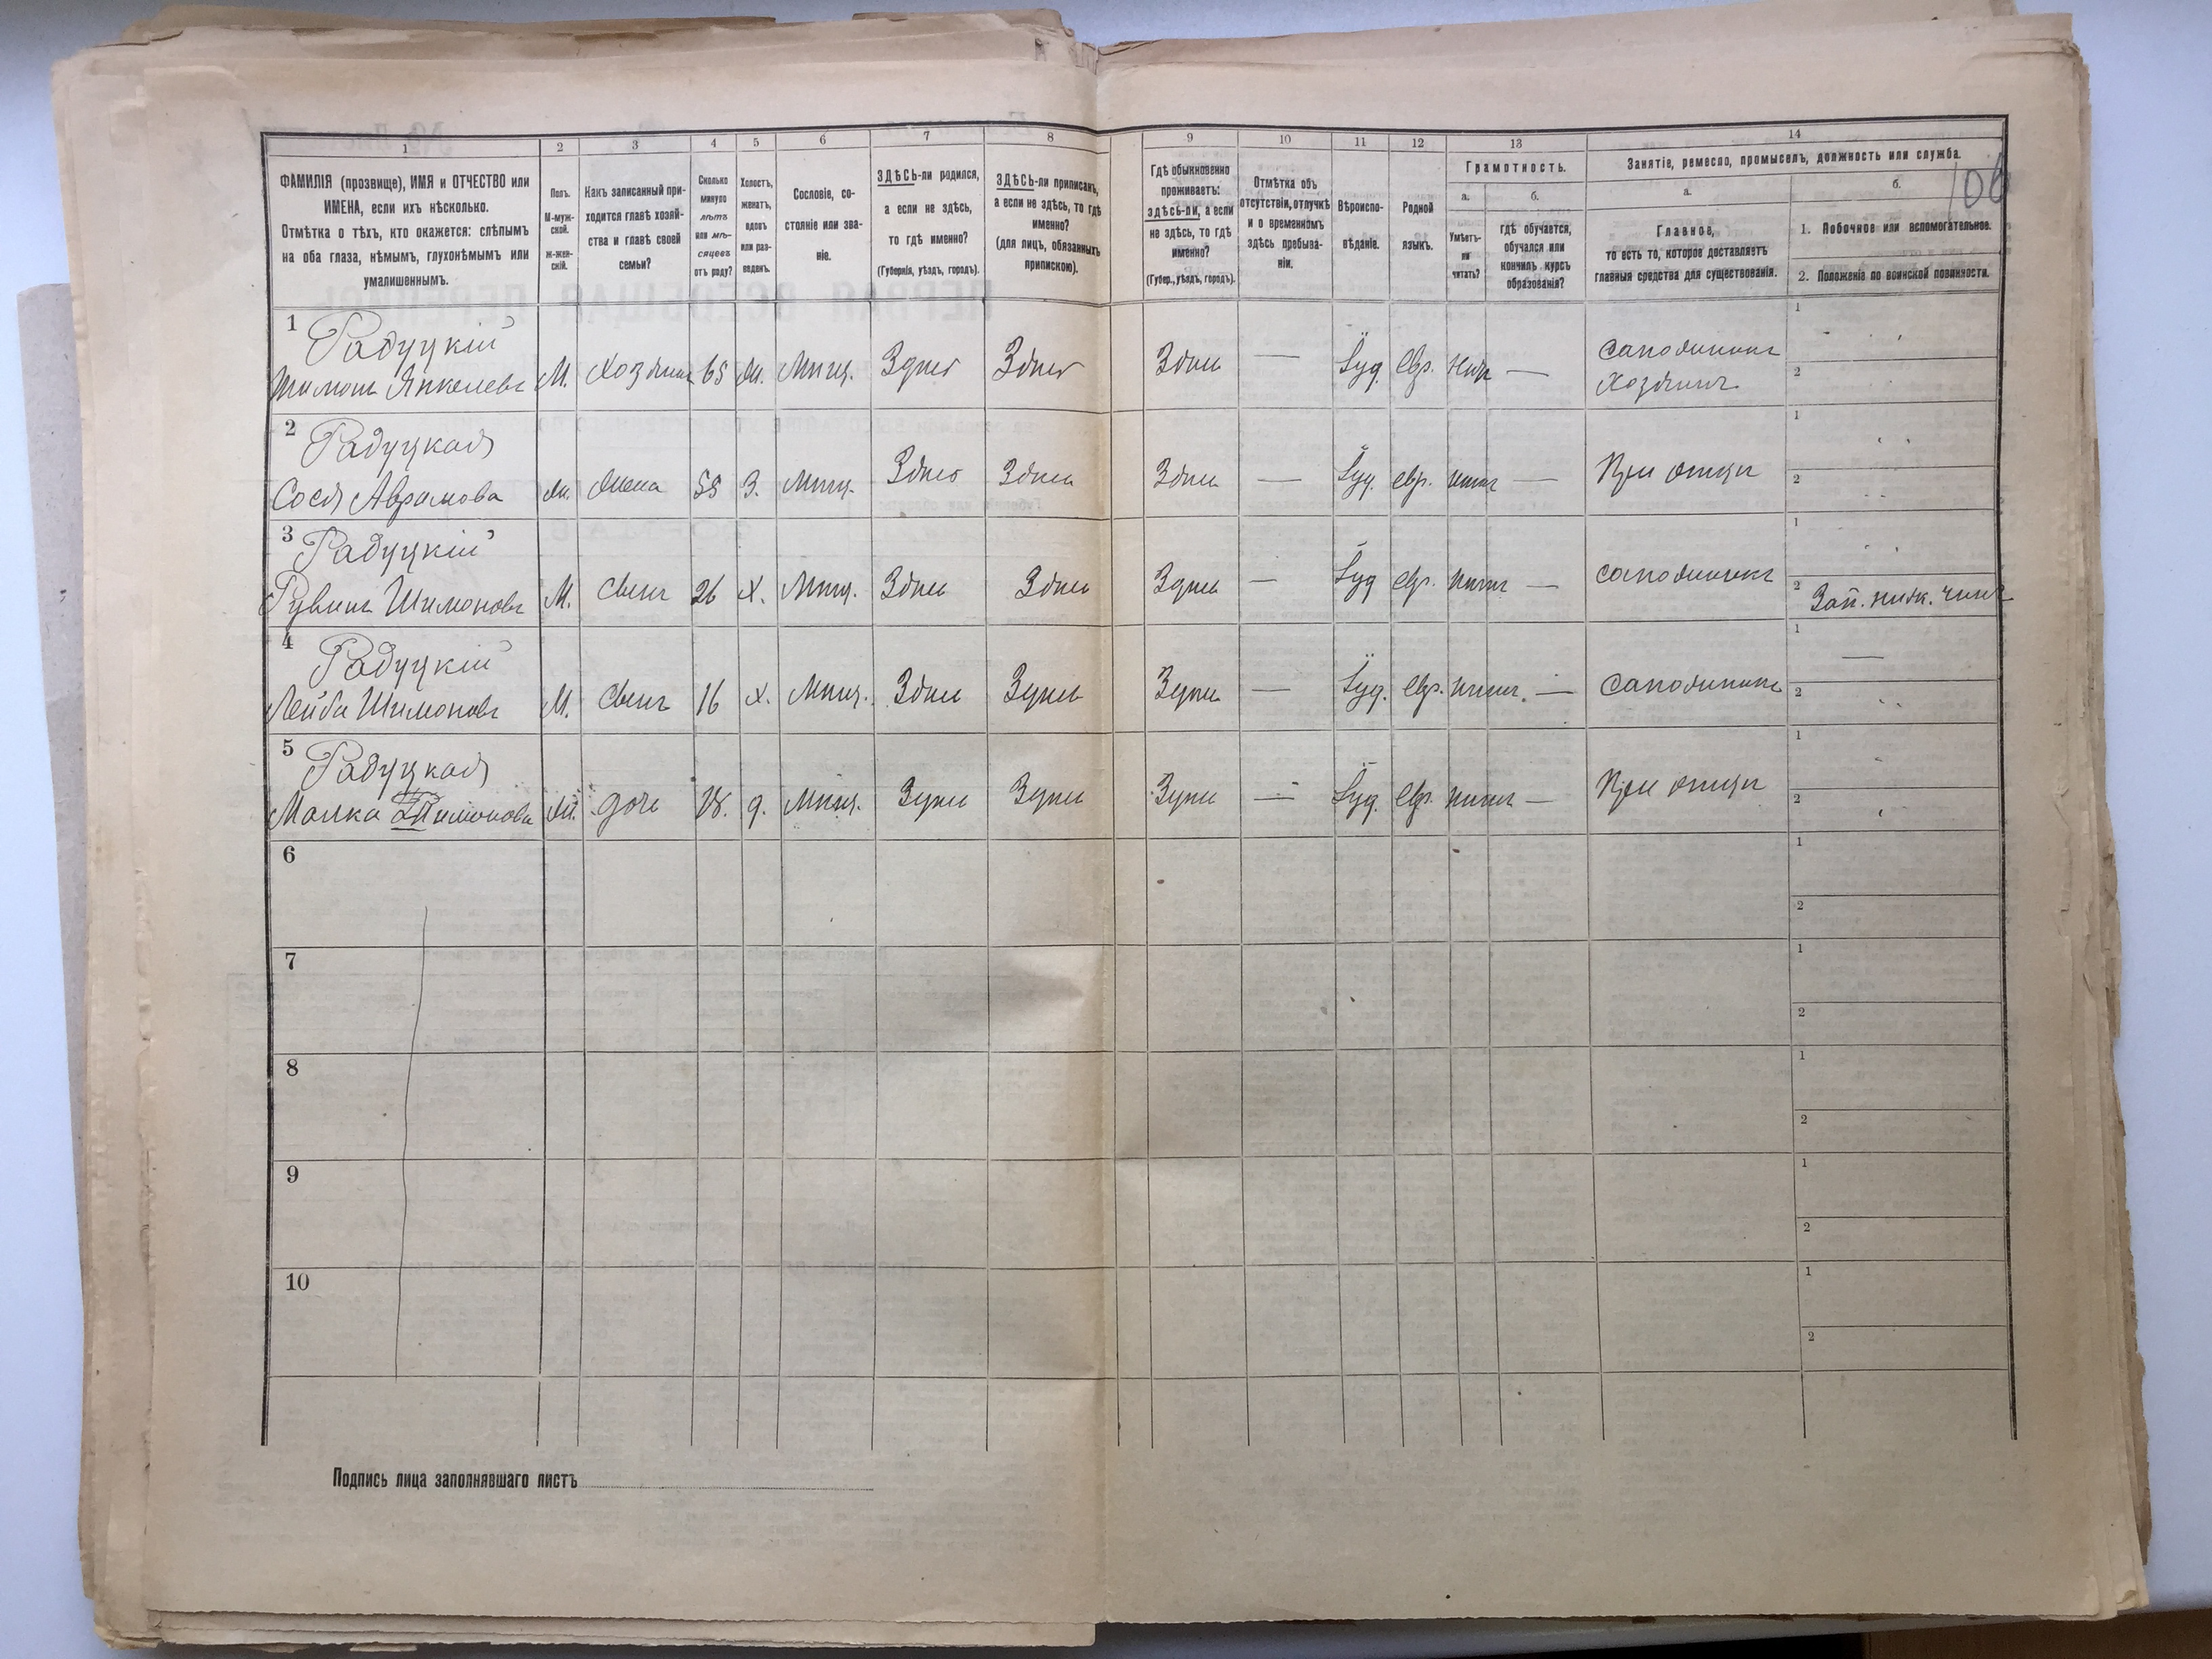 1 2 3 4 5 6 7 8 9 10 11 12 13 14
ФАМИЛІЯ (прозвище), ИМЯ и ОТЧЕСТВО или
ИМЕНА, если ихъ нѣсколько.
Отмѣтка о тѣхъ, кто окажется: слѣпымъ
на оба глаза, нѣмымъ, глухонѣмымъ или
умалишеннымъ.
Полъ.
М-муж-
ской.
Ж-жен-
скій.
Какъ записанный при-
ходится главѣ хозяй-
ства и главѣ своей
семьи?
Сколько
минуло
лѣтъ
или мѣ-
сяцевъ
отъ роду?
Холостъ,
женатъ,
вдовъ
или раз-
веденъ.
Сословіе, со-
стояніе или зва-
ніе.
ЗДѢСЬ-ли родился,
а если не здѣсь,
то гдѣ именно?
(Губернія, уѣздъ, городъ).
ЗДѢСЬ-ли приписанъ,
а если не здѣсь, то гдѣ
именно?
(для лицъ, обязанныхъ
припискою).
Гдѣ обыкновенно
проживаетъ:
ЗДѢСЬ-ЛИ, а если
не здѣсь, то гдѣ
именно?
(Губер., уѣздъ, городъ).
Отмѣтка объ
отсутствіи, отлучкѣ
и о временномъ
здѣсь пребыва-
ніи.
Вѣроиспо-
вѣданіе.
Родной
языкъ.
Грамотность.
а. б.
Умѣетъ-
ли
читать?
гдѣ обучается,
обучался или
кончилъ курсъ
образованія?
Занятіе, ремесло, промыселъ, должность или служба.
106
а. б.
Главное,
то есть то, которое доставляетъ
главныя средства для существованія.
1. Побочное или вспомогательное.
2. Положеніе по воинской повинности.
1 Радуцкій
Шимонъ Янкелевъ М. Хозяинъ 65 Ж. Мѣщ. Здѣсь Здѣсь Здѣсь — Іуд. Евр. Нѣтъ — сапожникъ 1
хозяинъ 2
2 Радуцкая
Сося Абрамова Ж. Жена 55 З. Мѣщ. Здѣсь Здѣсь Здѣсь — Іуд. евр. Нѣтъ — При отцѣ 1
2
3 Радуцкій
Рувинъ Шимоновъ М. Сынъ 26 Х. Мѣщ. Здѣсь Здѣсь Здѣсь — Іуд евр. Нѣтъ — сапожникъ 1
2 Зап. ниж. чинъ
4 Радуцкій
Лейба Шимоновъ М. Сынъ 16 Х. Мѣщ. Здѣсь Здѣсь Здѣсь — Іуд. Евр. Нѣтъ. — Сапожникъ 1 —
2
5 Радуцкая
Малка Шимонова Ж. дочь 18. д. Мѣщ. Здѣсь Здѣсь Здѣсь — Іуд. Евр. Нѣтъ — При отцѣ 1
2
6 1
2
7 1
2
8 1
2
9 1
2
10 1
2
Подпись лица заполнявшаго листъ